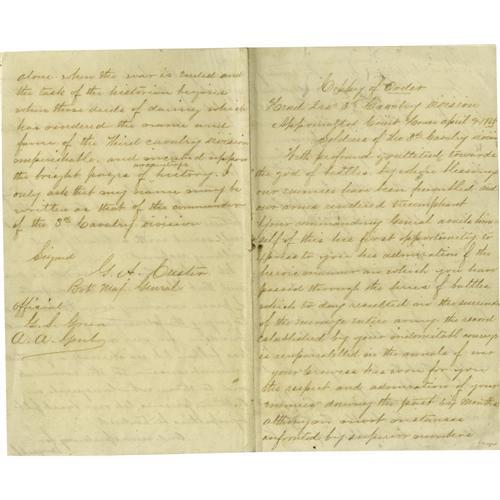 alone when the war is ended and
the task of the historian begins
when those deeds of daring which
has rendered the name and
fame of the Third cavalry division
imperishable, and are upon
the bright pages of history. I
only ask that my name may be
written as that of the commander
of the 3rd Cavalry division
Signed
G. A. Custer
Bvt Maj General
official
A. A. Genl
Coppy of Order
Head Qrs 3rd Cavalry Division
Appomattox Court House April 9, 1865
Soldiers of the 3rd Cavalry division
With profound gratitude towards
the god of battles by whose blessings
our enemies have been humbled and
our arms rendered triumphant
your commanding General avails him
self of this his first opportunity to
express to you his admiration of the
heroic manner in which you have
passed through the series of battles
which to day resulted in the surrender
of the enemys entire army the record
established by your indomitable courage
is unparalelled in the annals of war
your prowess has won for you
the respect and admiration of your
enemies during the past six Months
although in most instances
confronted by superior numbers